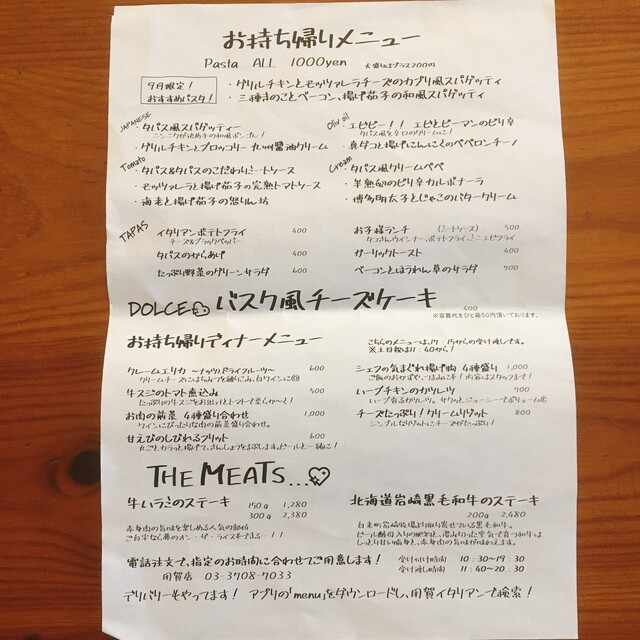 お持ち帰りメニュー
Pasta ALL 1000yen 大盛りはプラス200円
9月限定!
おすすめパスタ!
・グリルチキンとモッツァレラチーズのカプリ風スパゲッティ
・三種きのことベーコン、揚げ茄子の和風スパゲッティ
JAPANESE
・タパス風スパゲッティー
ニンニクがっつめ子の和風ボンゴレ!
・グリルチキンとブロッコリー 九州醤油クリーム
Olivoil
・エビピー!! エビとピーマンのピリ辛
タパス風を辛口のクリームに!
・真ダコと揚げにんにくのペペロンチーノ
Tomato
・タパス&タパスのこだわりミートソース
・モッツァレラと揚げ茄子の完熟トマトソース
・海老と揚げ茄子の怒りん坊
Cream
・タパス風クリームペペ
・半熟卵のピリ辛カルボナーラ
・博多明太子とじゃこのバタークリーム
TAPAS
イタリアンポテトフライ 400
チーズ&ブラックペッパー
タパスのからあげ 400
たっぷり野菜のグリーンサラダ 600
お子様ランチ (ミートソース) 500
タコさんウインナー、ポテトフライ、ミニエビフライ
ガーリックトースト 400
ベーコンとほうれん草のサラダ 700
DOLCE バスク風チーズケーキ 400
※容器代をひと箱50円頂いております。
お持ち帰りディナーメニュー
こちらのメニューは、17:15からの受け渡しです。
※土日祝は11:40から!
クレームエリカ ~ナッツとドライフルーツ~ 600
クリームチーズにはちみつを練りこみ、白ワインに◎
牛スジのトマト煮込み 500
たっぷりの牛スジをお出汁とトマトで柔らか~く!
お肉の前菜 4種盛り合わせ 1,000
ワインにぴったりな肉の前菜盛り合わせ。
甘えびのしびれるフリット 600
丸ごとカラっと揚げて、さんしょうをまぶします。ビールと一緒に!
シェフの気まぐれ揚げ物 4種盛り 1,000
ご飯のおかずや、つまみに! 内容はスタッフまで!
ハーブチキンのカツレツ 700
ハーブ香るカツレツ。サクッとジューシーでボリューム◎
チーズたっぷり!クリームリゾット 800
シンプルなリゾットにチーズがたっぷり!
THE MEATS...
牛ハラミのステーキ 150g 1,280
300g 2,380
赤身肉の旨味を楽しめる人気の部位
ご自宅なら夢のオン・ザ・ライスもできる…!!
北海道岩崎黒毛和牛のステーキ
200g 2,480
白老町岩崎牧場より取り寄せている黒毛和牛。
ビール酵母入りの肥料を、澄み切った空気で育つ和牛は
しっとり甘い脂身と、赤身肉の旨味が味わえます。
電話注文で、指定のお時間に合わせてご用意します!
用賀店 03-3708-7033
受け付け時間 10:30~19:30
受け渡し時間 11:40~20:30
デリバリーもやってます! アプリの「menu」をダウンロードし、用賀イタリアンで検索!